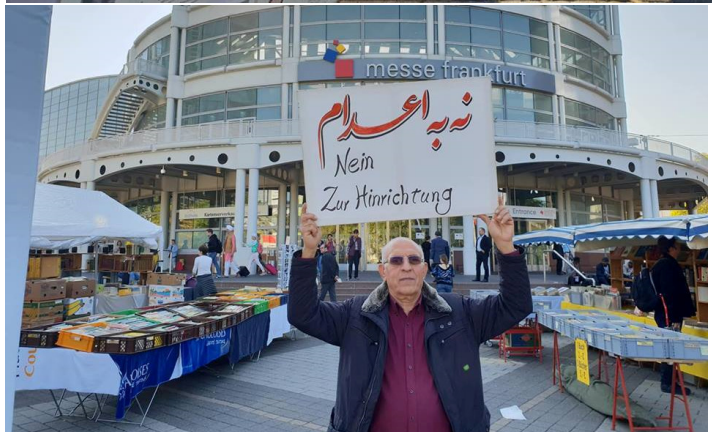 messe frankfurt
نه به اعدام
Nein
Zur Hinrichtung